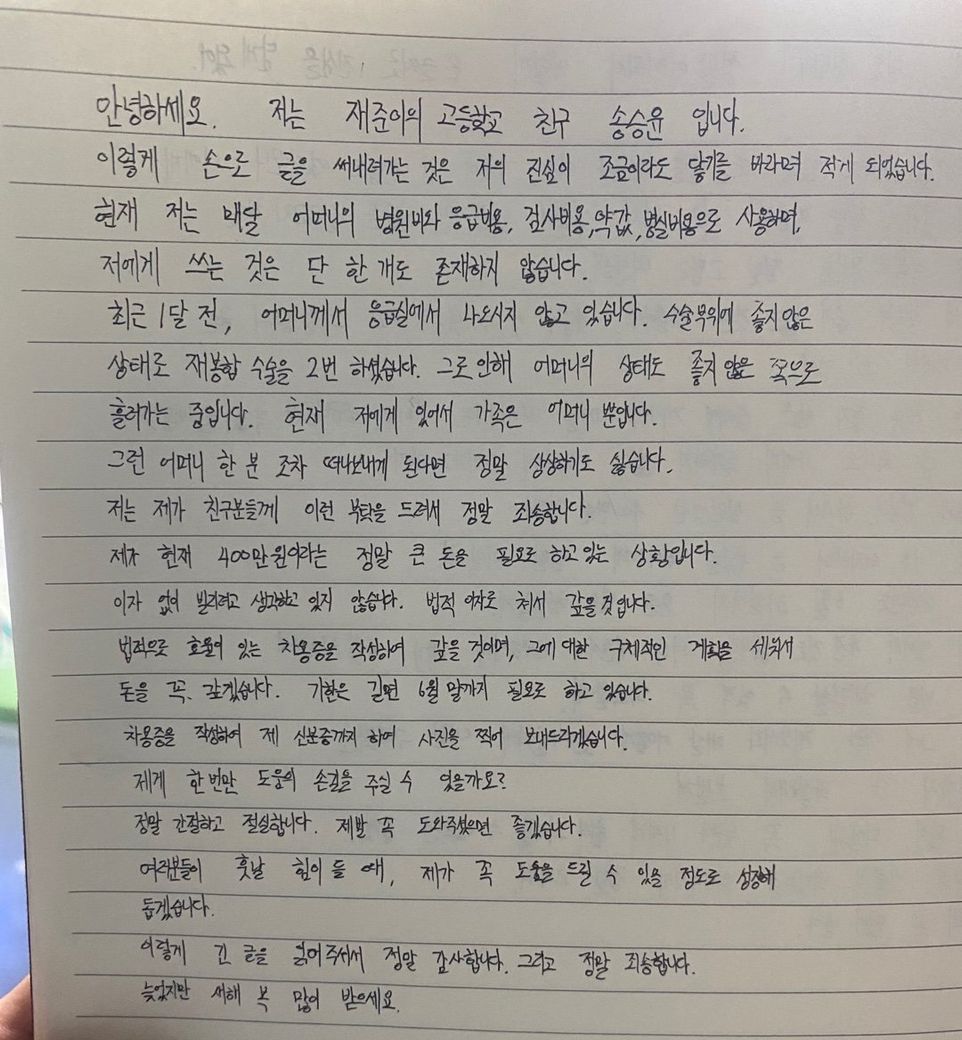 안녕하세요. 저는 재준이의 고등학교 친구 송승윤 입니다.
이렇게 손으로 글을 써내려가는 것은 저의 진심이 조금이라도 닿기를 바라며 적게 되었습니다.
현재 저는 매달 어머니의 병원비와 응급비용, 검사비용, 약값, 병실비용으로 사용하며,
저에게 쓰는 것은 단 한 개도 존재하지 않습니다.
최근 1달 전, 어머니께서 응급실에서 나오시지 않고 있습니다. 수술부위에 좋지않은
상태로 재봉합 수술을 2번 하셨습니다. 그로 인해 어머니의 상태도 좋지 않은 쪽으로
흘러가는 중입니다. 현재 저에게 있어서 가족은 어머니 뿐입니다.
그런 어머니 한 분 조차 떠나보내게 된다면 정말 상상하기도 싫습니다.
저는 제가 친구분들께 이런 부탁을 드려서 정말 죄송합니다.
제가 현재 400만원이라는 정말 큰 돈을 필요로 하고 있는 상황입니다.
이자 없이 빌리려고 생각하고 있지 않습니다. 법적 이자로 쳐서 갚을 것입니다.
법적으로 효율이 있는 차용증을 작성하여 갚을 것이며, 그에 대한 구체적인 계획을 세워서
돈을 꼭 갚겠습니다. 기한은 길면 6월 말까지 필요로 하고 있습니다.
차용증을 작성하여 제 신분증까지 하여 사진을 찍어 보내드리겠습니다.
제게 한번만 도움의 손길을 주실 수 있을까요?
정말 간절하고 절실합니다. 제발 꼭 도와주셨으면 좋겠습니다.
여러분들이 훗날 힘이 들 때, 제가 꼭 도움을 드릴 수 있을 정도로 성장해
돕겠습니다.
이렇게 긴 글을 읽어주셔서 정말 감사합니다. 그리고 정말 죄송합니다.
늦었지만 새해 복 많이 받으세요.